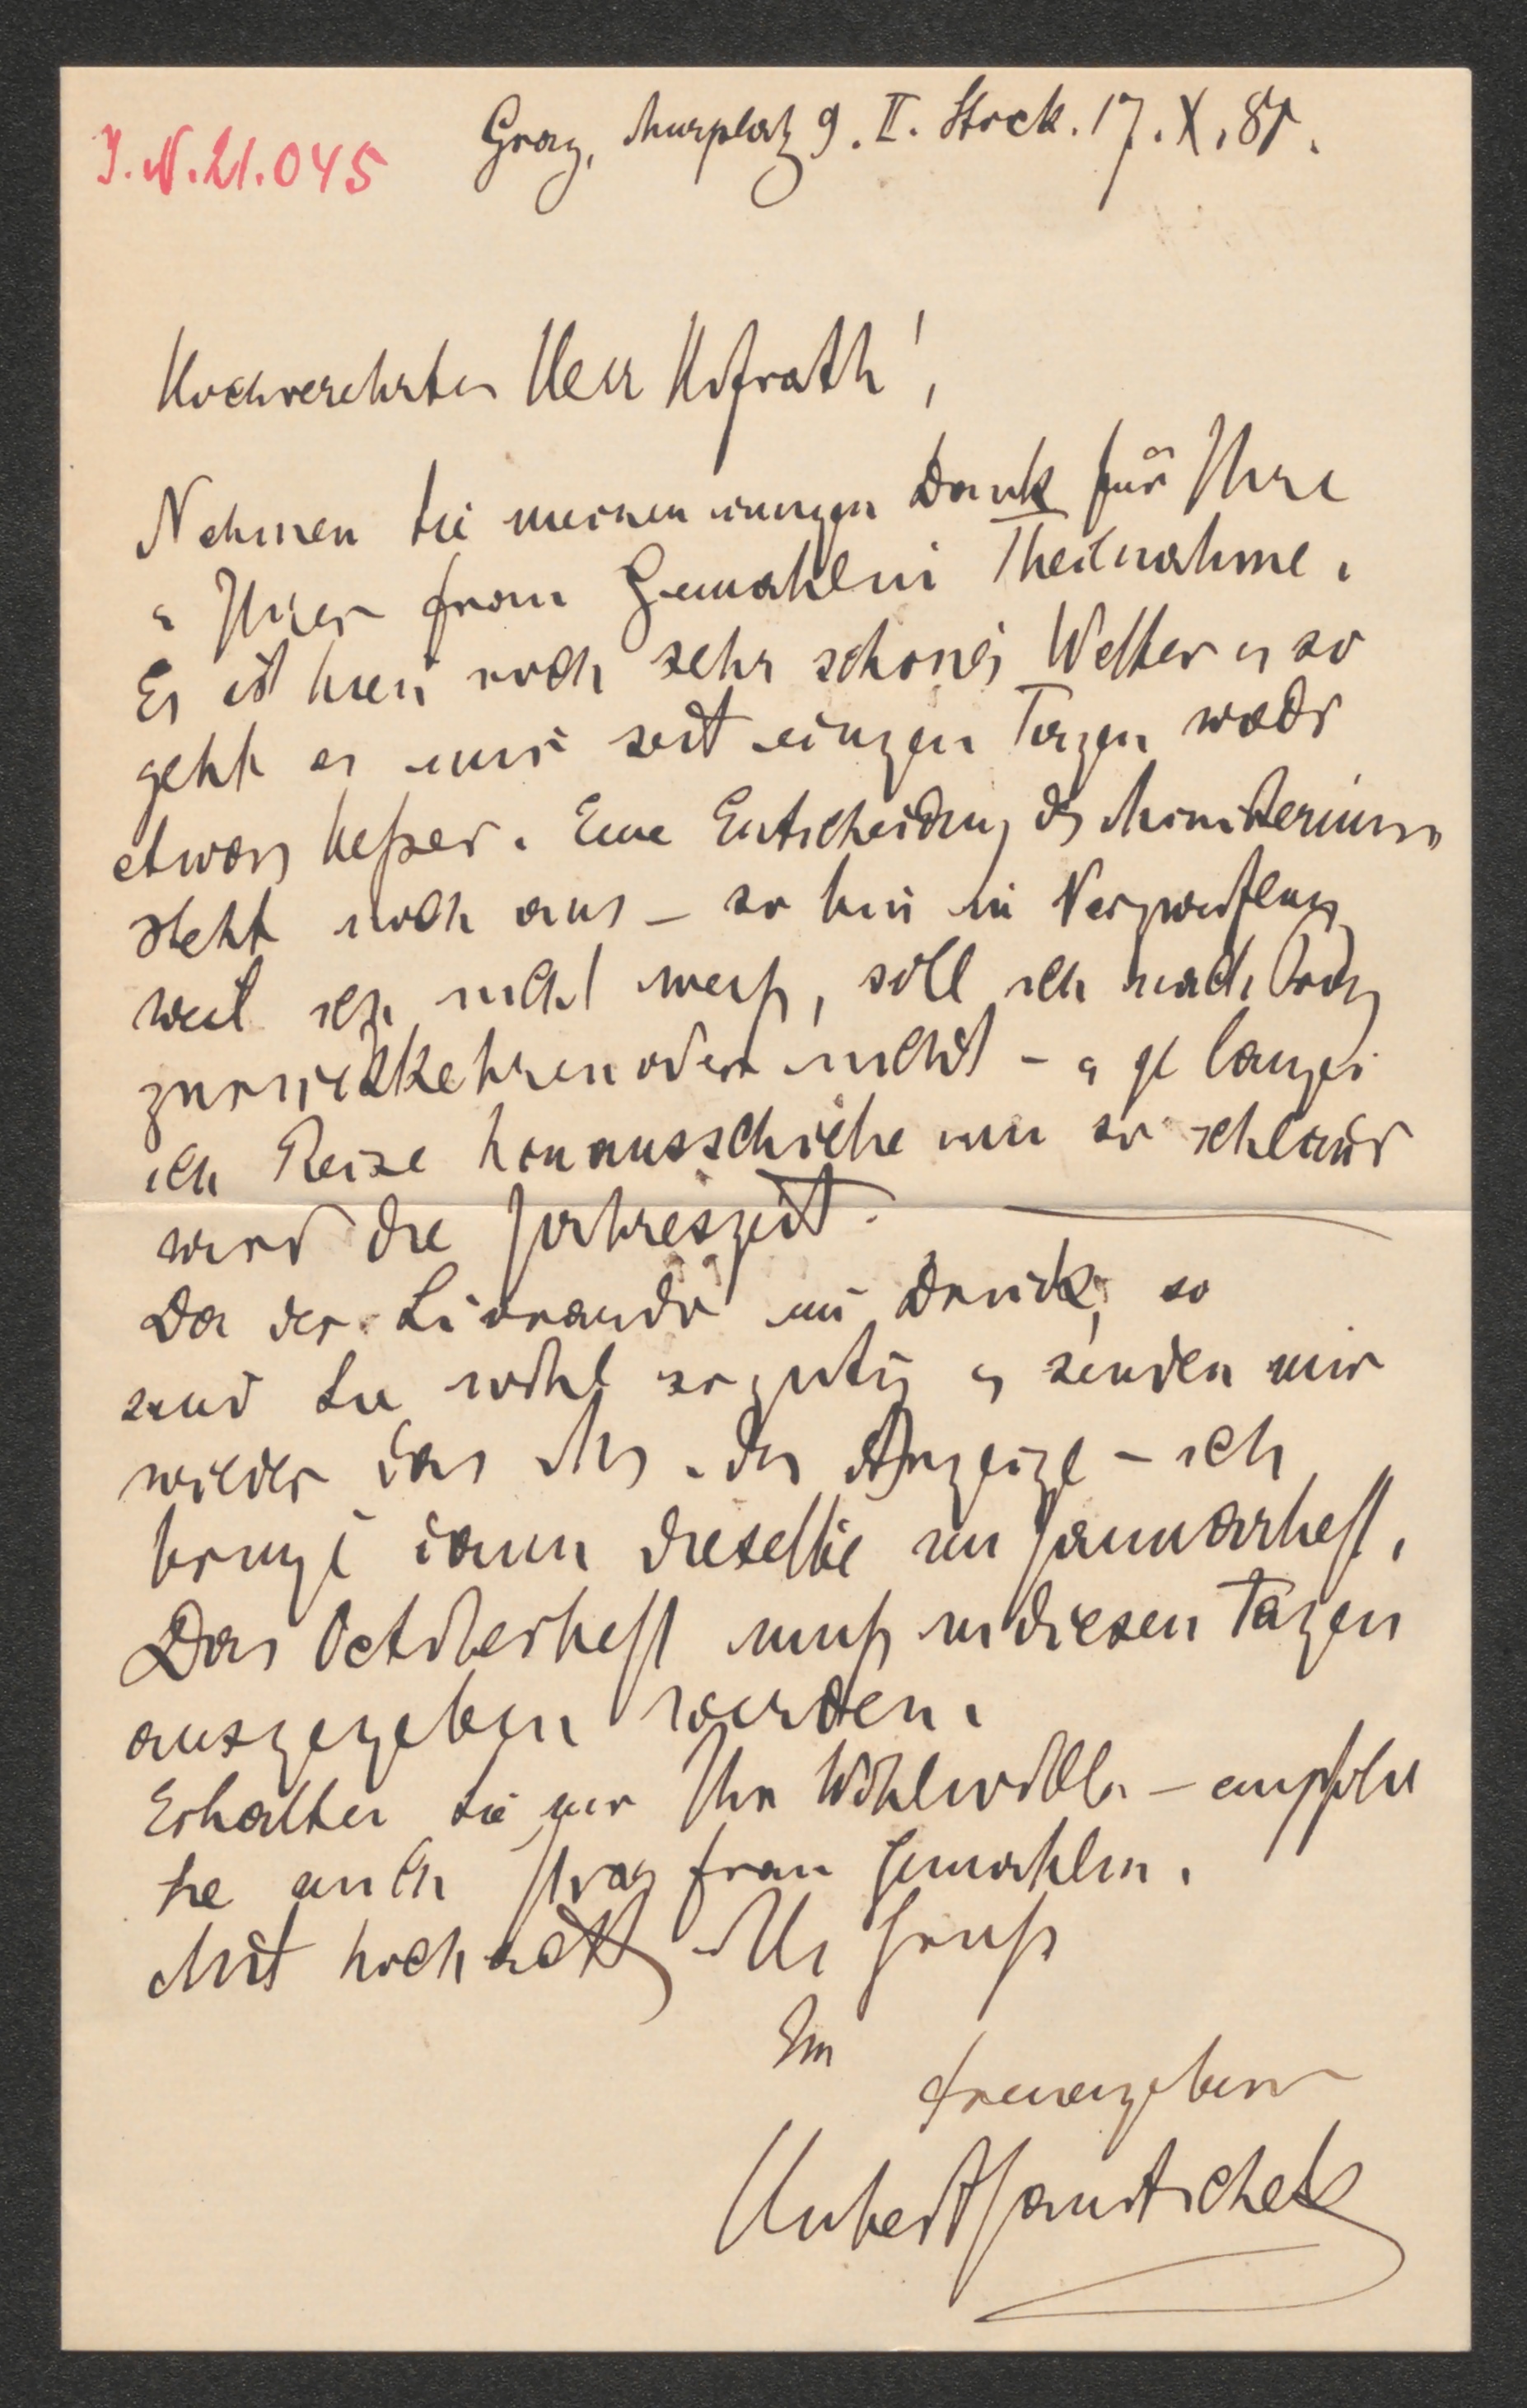 J.N.21.045
Graz, Murplatz 9. II. Stock. 17. X. 87.
Hochverehrter Herr Hofrath!
Nehmen Sie meinen innigen Dank für Ihre
u Ihrer Frau Gemahlin Theilnahme.
Es ist hier noch sehr schönes Wetter u so
geht es mir seit einigen Tagen wieder
etwas beßer. Eine Entscheidung ds Ministeriums
steht noch aus – so bin in Verzweiflung
weil ich nicht weiß, soll ich nach
zurückkehren oder nicht – u je länger
ich Reise hinausschiebe um so
wird die Jahreszeit.
Da der Livrando im Druck, so
sind Sie wohl so gütig u senden mir
wieder das Ms. der Anzeige – ich
bringe dann dieselbe im Januarheft.
Das Octoberheft muß in diesen Tagen
ausgegeben werden.
Erhalten Sie mir Ihr Wohlwollen – empfehle
Sie auch Ihrer Frau Gemahlin.
Mit hochacht Gruß
Ihr
treuergebener
Hubert Janitschek